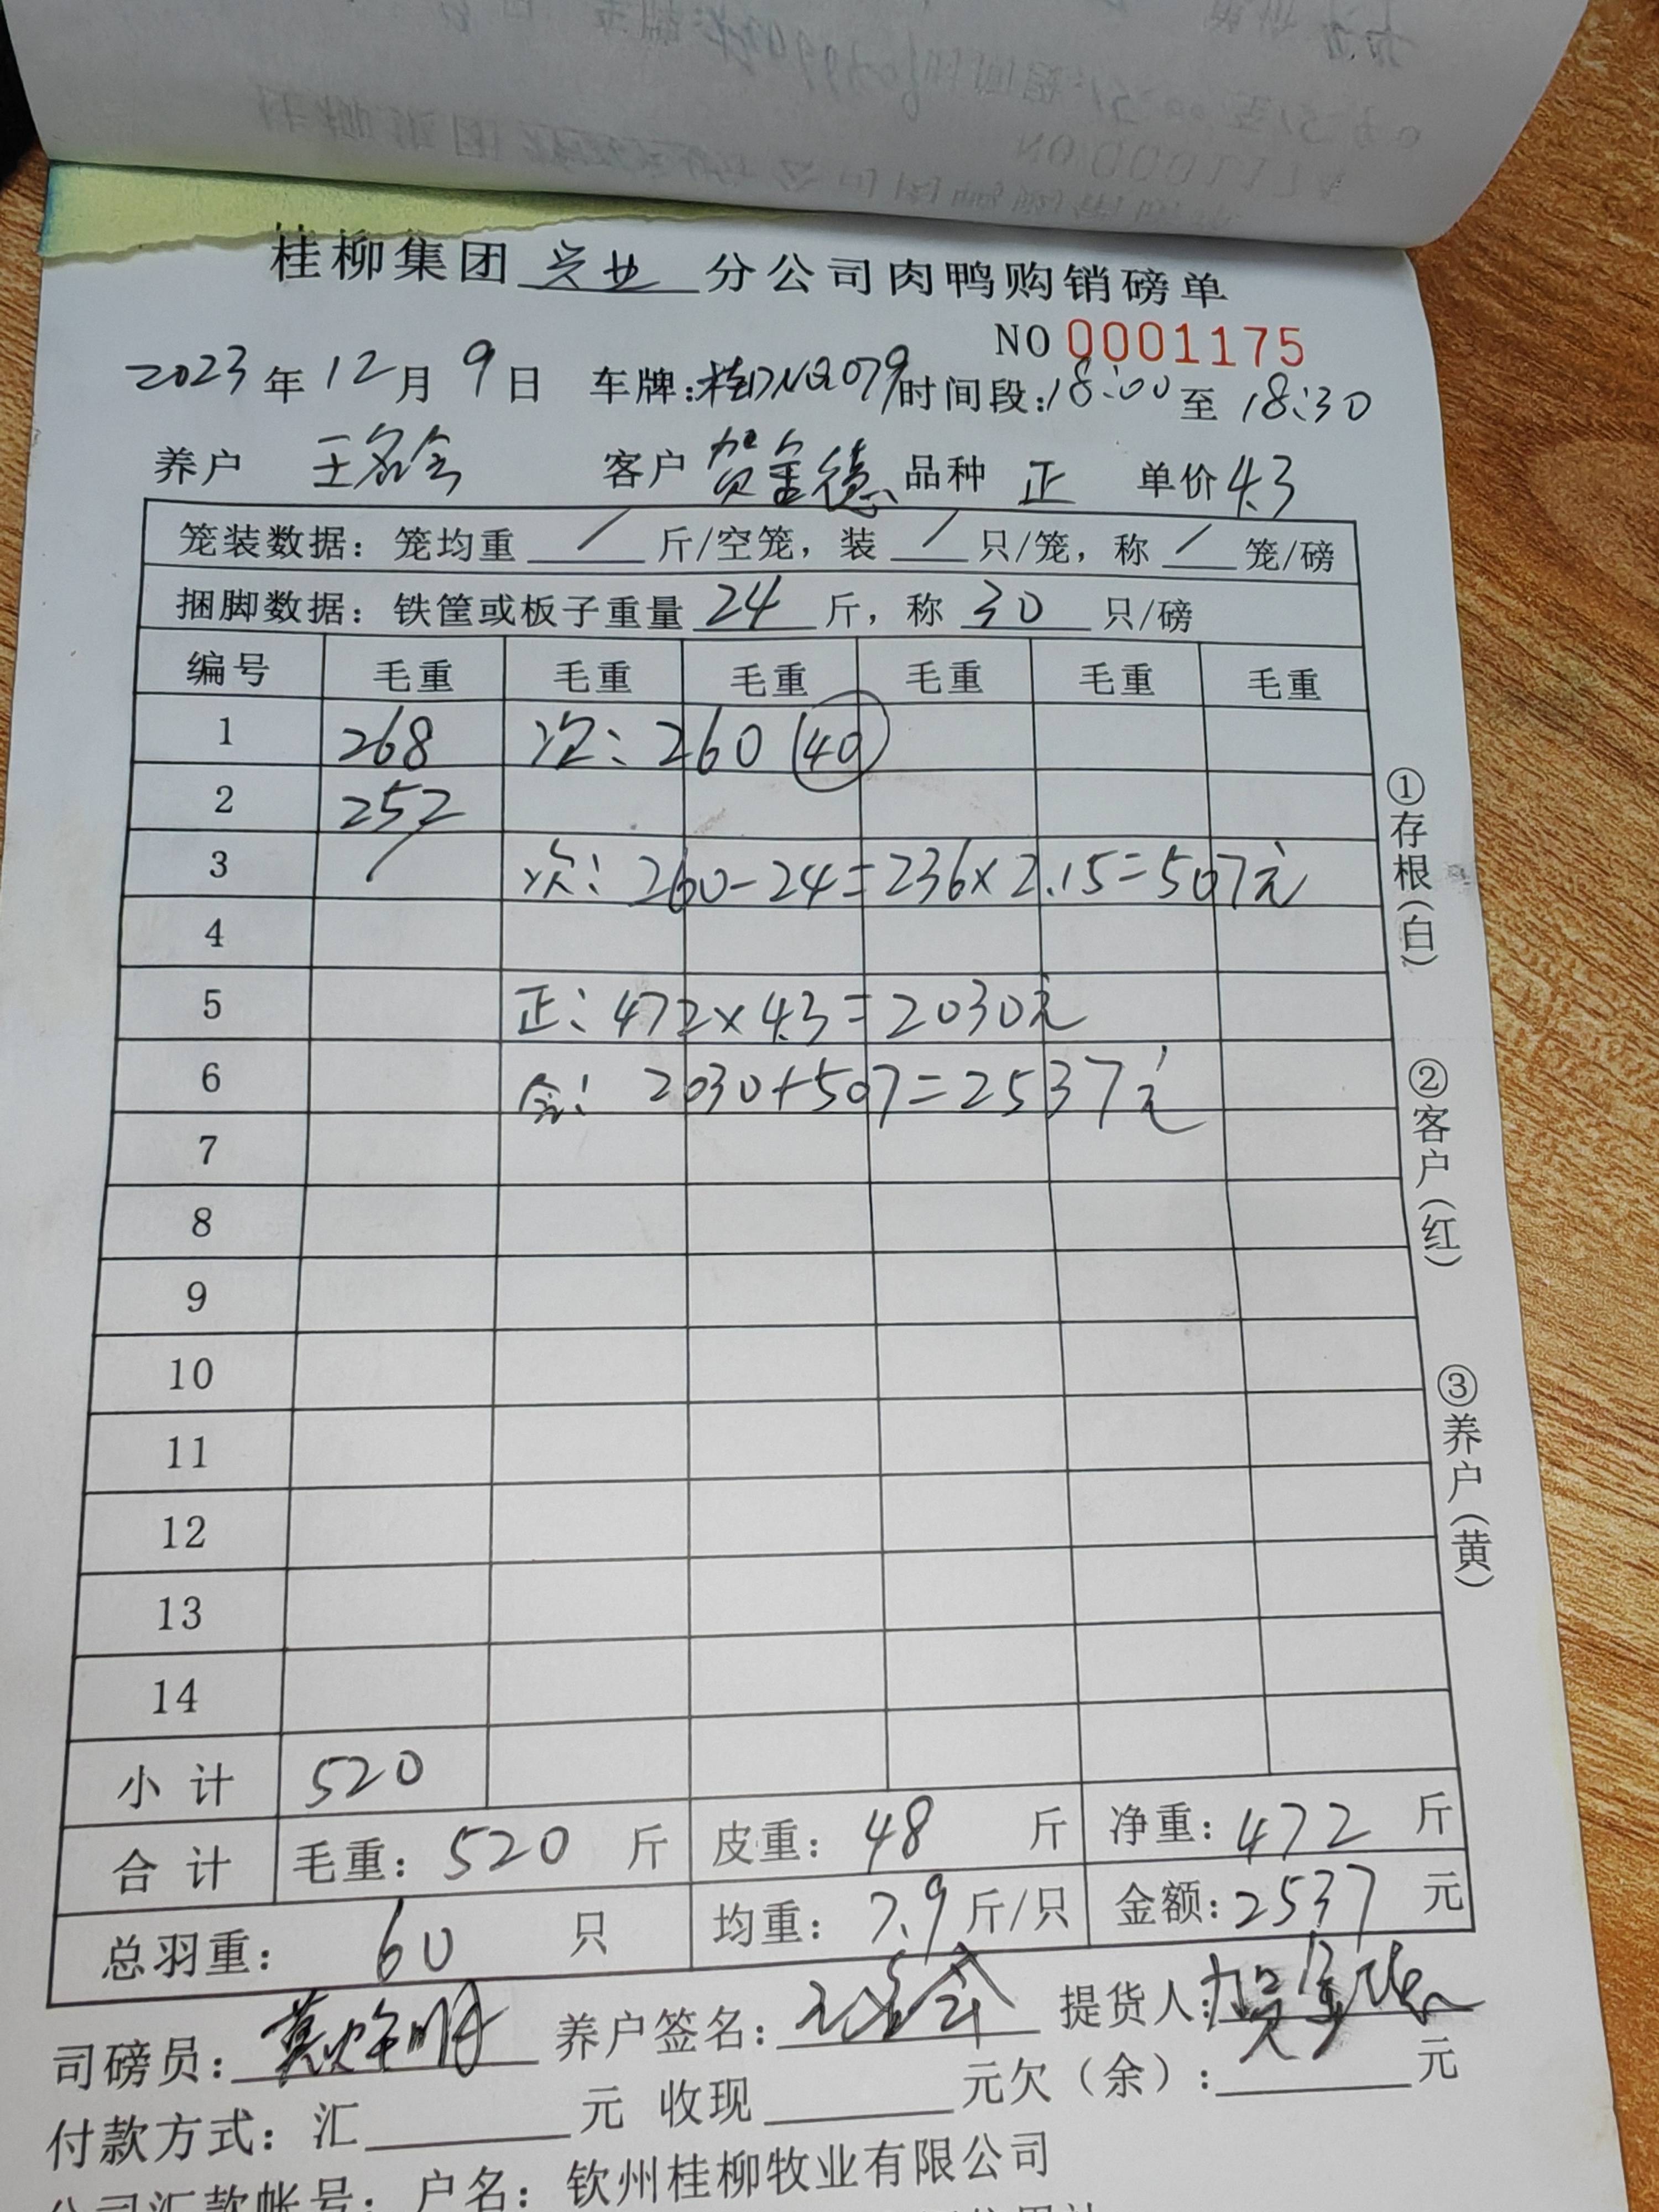 桂柳集团 兴业 分公司肉鸭购销磅单
NO 0001175
2023年12月9日 车牌:桂DNQ079 时间段:18:00至18:30
养户 王名会 客户 贺金德 品种 正 单价 4.3
笼装数据：笼均重 / 斤/空笼，装 / 只/笼，称 / 笼/磅
捆脚数据：铁筐或板子重量 24 斤，称 30 只/磅
编号 毛重 毛重 毛重 毛重 毛重 毛重
1 268 次: 260 (40)
2 252
3 / 次: 260-24=236×2.15=507元
4
5 正: 472×4.3=2030元
6 合: 2030+507=2537元
7
8
9
10
11
12
13
14
小计 520
合计 毛重：520 斤 皮重：48 斤 净重：472 斤
总羽重：60 只 均重：7.9 斤/只 金额：2537 元
司磅员： 养户签名：王名会 提货人：贺金德
付款方式：汇 元 收现 元欠（余）： 元
公司汇款帐号：户名：钦州桂柳牧业有限公司
①存根(白)
②客户(红)
③养户(黄)